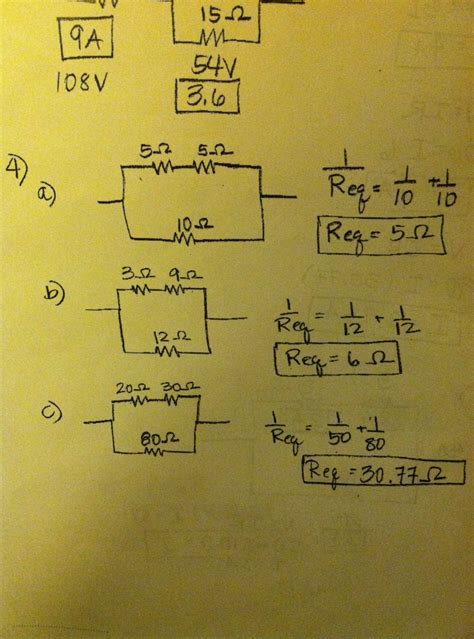 15Ω
9A
54V
108V
3.6
4)
a)
5Ω 5Ω
10Ω
1/Req = 1/10 + 1/10
Req = 5Ω
b)
3Ω 9Ω
12Ω
1/Req = 1/12 + 1/12
Req = 6Ω
c)
20Ω 30Ω
80Ω
1/Req = 1/50 + 1/80
Req = 30.77Ω